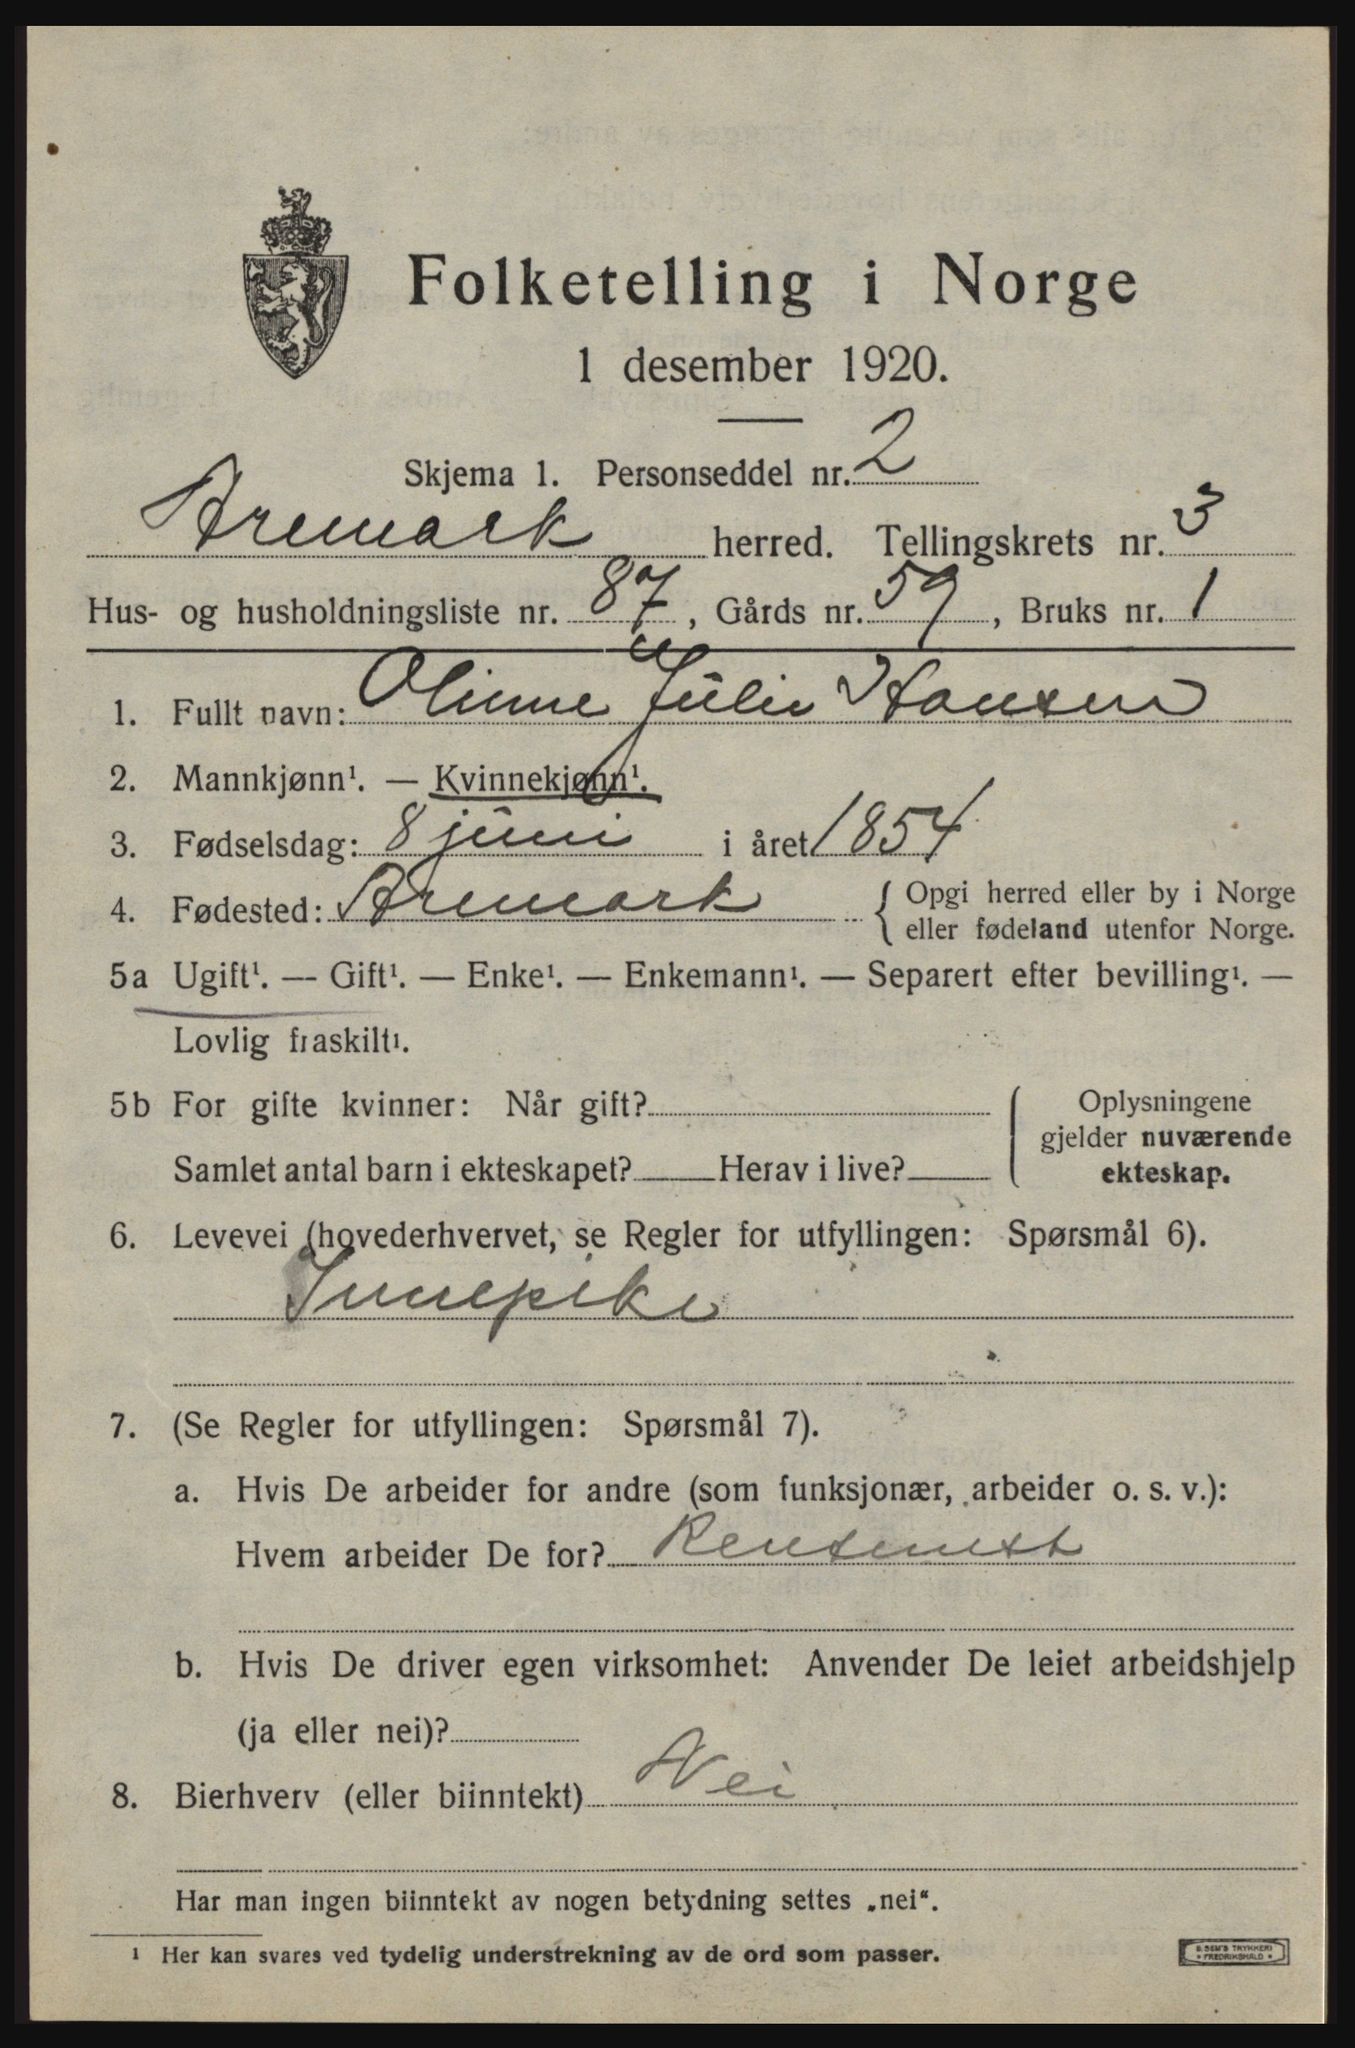 Folketelling i Norge
1 desember 1920.
Skjema 1. Personseddel nr. 2
Aremark herred. Tellingskrets nr. 3
Hus- og husholdningsliste nr. 87, Gårds nr. 59, Bruks nr. 1
1. Fullt navn: Olinne Julie Hansen
2. Mannkjønn¹. — Kvinnekjønn¹.
3. Fødselsdag: 8 juni i året 1854
4. Fødested: Aremark { Opgi herred eller by i Norge
eller fødeland utenfor Norge.
5a Ugift¹. — Gift¹. — Enke¹. — Enkemann¹. — Separert efter bevilling¹. —
Lovlig fraskilt¹.
5b For gifte kvinner: Når gift?
Samlet antal barn i ekteskapet? Herav i live?
Oplysningene
gjelder nuværende
ekteskap.
6. Levevei (hovederhvervet, se Regler for utfyllingen: Spørsmål 6).
Innepike
7. (Se Regler for utfyllingen: Spørsmål 7).
a. Hvis De arbeider for andre (som funksjonær, arbeider o. s. v.):
Hvem arbeider De for?
b. Hvis De driver egen virksomhet: Anvender De leiet arbeidshjelp
(ja eller nei)?
8. Bierhverv (eller biinntekt) Nei
Har man ingen biinntekt av nogen betydning settes „nei“.
¹ Her kan svares ved tydelig understrekning av de ord som passer.
E. SEM'S TRYKKERI
• FREDRIKSHALD •